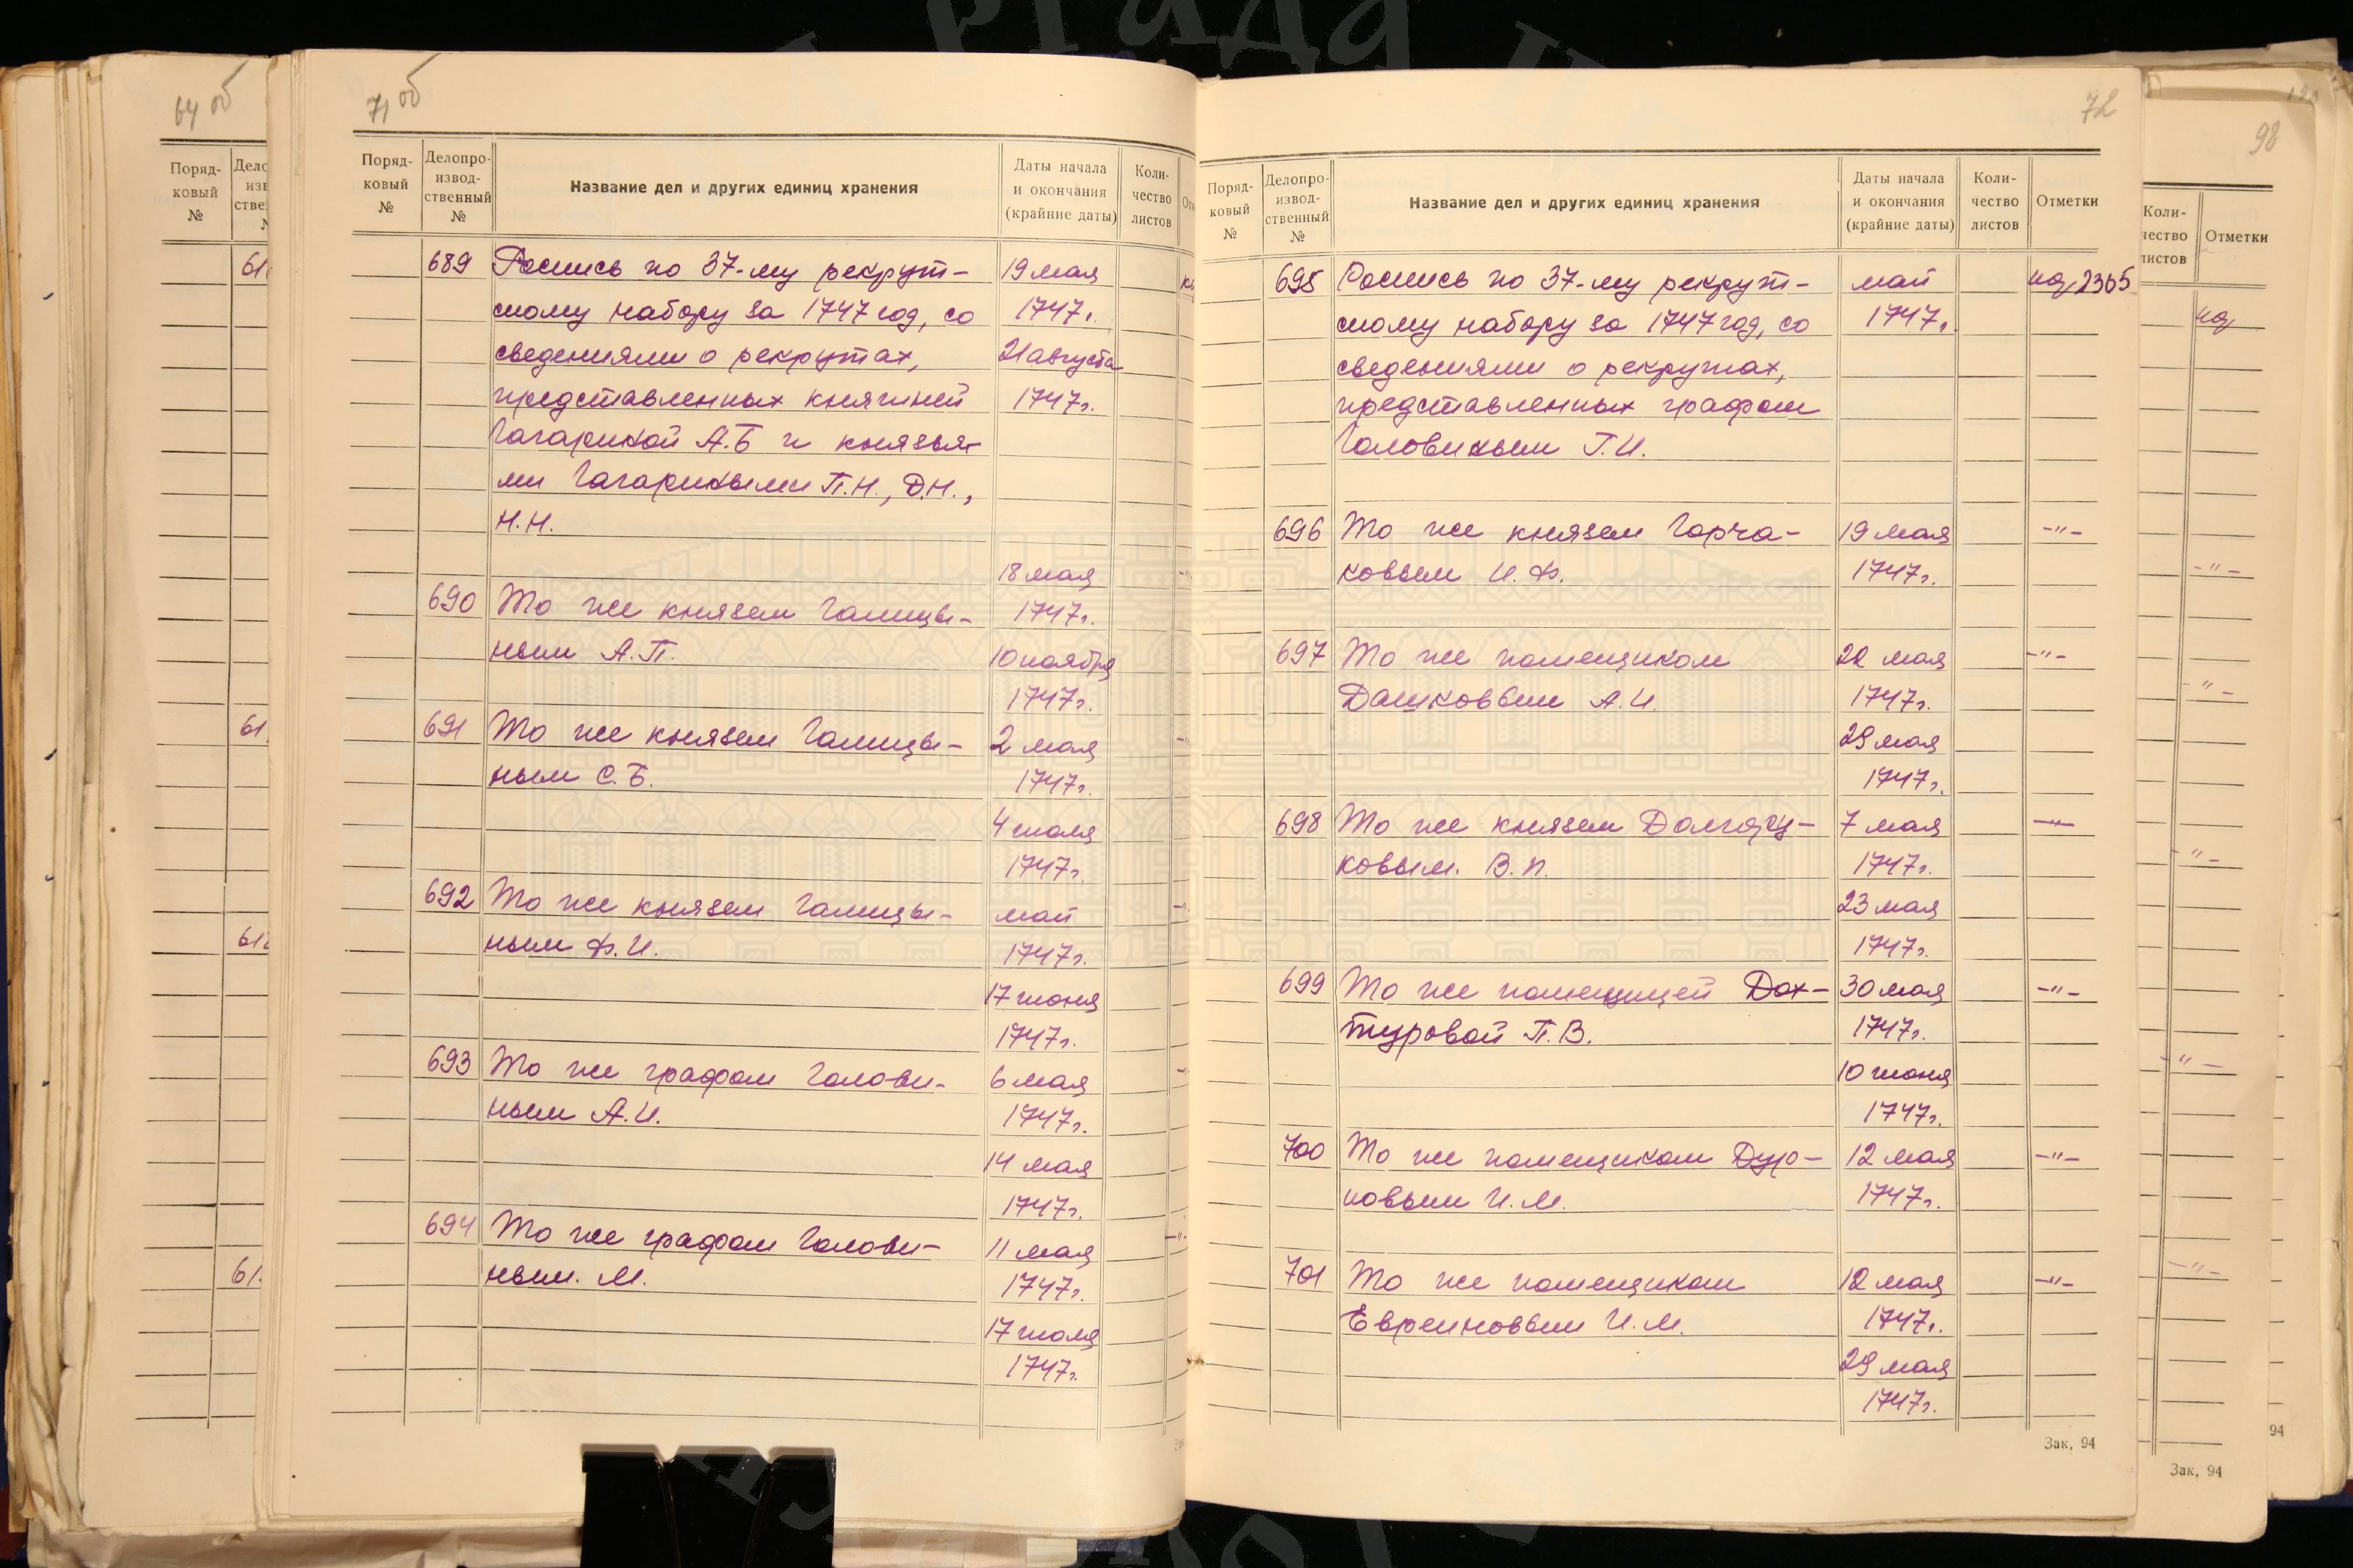 64 об
Поряд-
ковый
№
71 об
Поряд-
ковый
№
Делопро-
извод-
ственный
№
Название дел и других единиц хранения
Даты начала
и окончания
(крайние даты)
Коли-
чество
листов
689 Роспись по 37-му рекрут- 19 мая
скому набору за 1747 год, со 1747 г.
сведениями о рекрутах, 21 августа
представленных княгиней 1747 г.
Гагариной А.Б и князья-
ми Гагариными П.Н., Д.Н.,
Н.Н.
18 мая
690 То же князем Голицы- 1747 г.
ным А.П. 10 ноября
1747 г.
691 То же князем Голицы- 2 мая
ным С.Б. 1747 г.
4 июля
1747 г.
692 То же князем Голицы- май
ным Ф.И. 1747 г.
17 июня
1747 г.
693 То же графом Голови- 6 мая
ным А.И. 1747 г.
14 мая
1747 г.
694 То же графом Голови- 11 мая
ным. М. 1747 г.
17 июля
1747 г.
72
Поряд-
ковый
№
Делопро-
извод-
ственный
№
Название дел и других единиц хранения
Даты начала
и окончания
(крайние даты)
Коли-
чество
листов
Отметки
695 Роспись по 37-му рекрут- май 2365
скому набору за 1747 год, со 1747 г.
сведениями о рекрутах,
представленных графом
Головиным Г.И.
696 То же князем Горча- 19 мая -"-
ковым И.Ф. 1747 г.
697 То же помещиком 22 мая -"-
Дашковым А.И. 1747 г.
29 мая
1747 г.
698 То же князем Долгору- 7 мая -"-
ковым. В.П. 1747 г.
23 мая
1747 г.
699 То же помещицей Дох- 30 мая -"-
туровой П.В. 1747 г.
10 июня
1747 г.
700 То же помещиком Дур- 12 мая -"-
новым И.М. 1747 г.
701 То же помещиком 12 мая -"-
Евреиновым И.М. 1747 г.
29 мая
1747 г.
Зак, 94
98
Отметки
-"-
-"-
-"-
-"-
-"-
Зак, 94
94